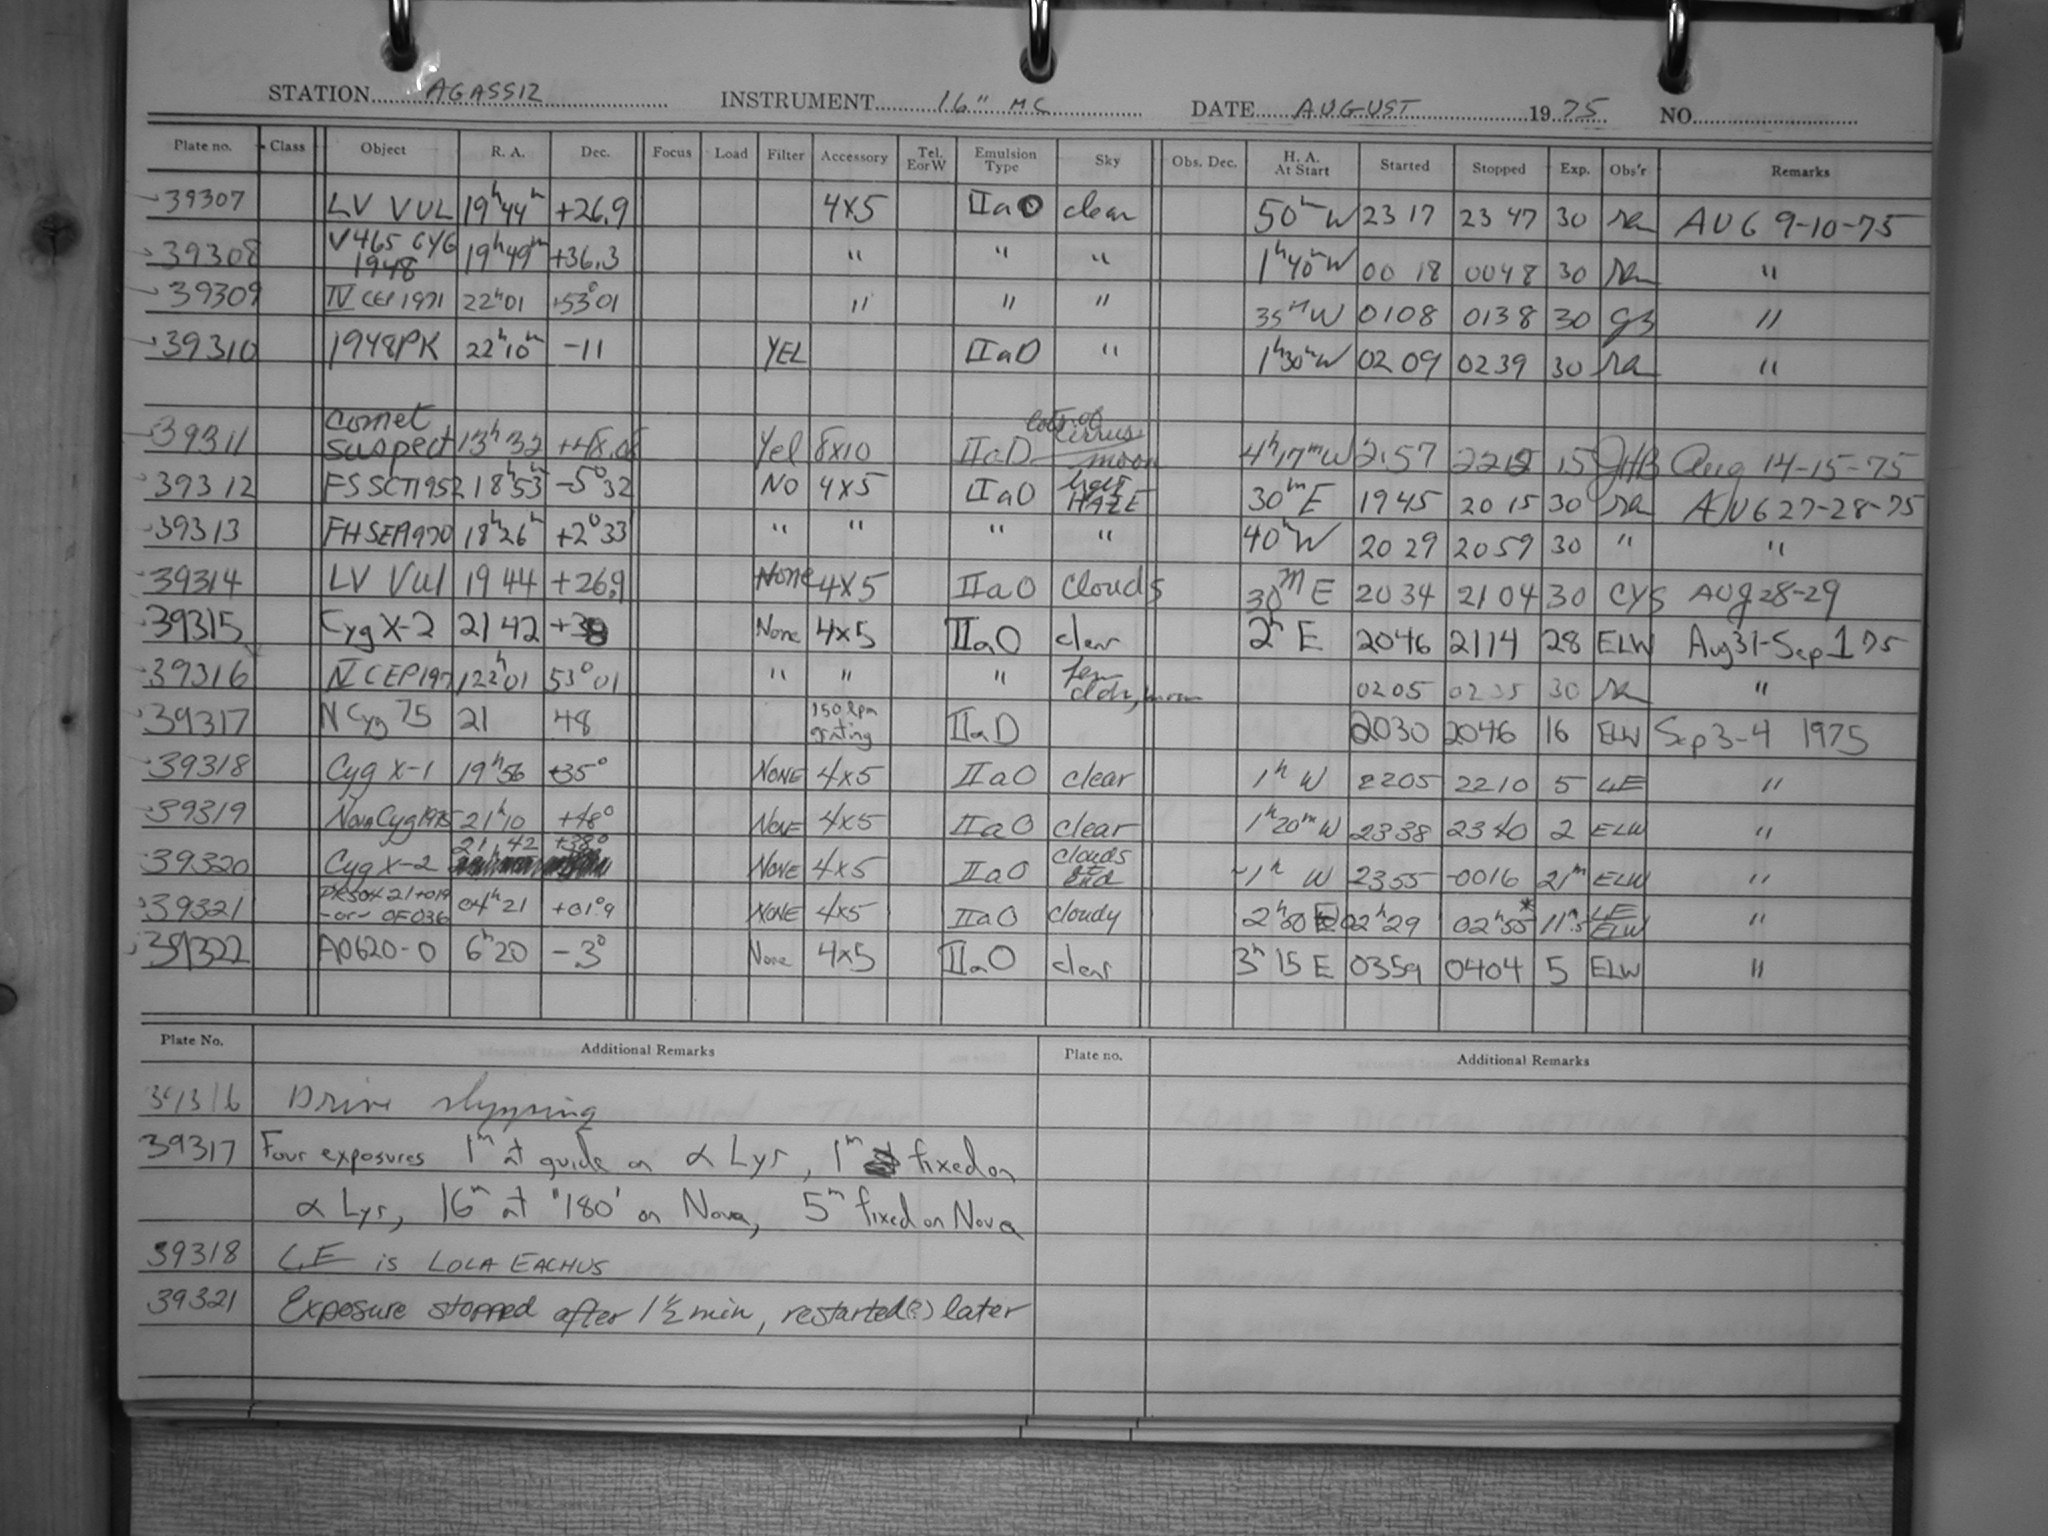 STATION AGASSIZ INSTRUMENT 16" MC DATE AUGUST 1975 NO.
Plate no. Class Object R. A. Dec. Focus Load Filter Accessory Tel. E or W Emulsion Type Sky Obs. Dec. H. A. At Start Started Stopped Exp. Obs'r Remarks
39307 LV VUL 19h44m +26.9 4x5 IIaO clear 50m W 23 17 23 47 30 AUG 9-10-75
39308 V465 CYG 1948 19h49m +36.3 " " " 1h40m W 00 18 0048 30 "
39309 IV CEP 1971 22h01 +53°01 " " " 35m W 0108 0138 30 "
39310 1948PK 22h10m -11 YEL IIaD " 1h30m W 02 09 02 39 30 "
39311 Comet suspect 13h32 Yel 8x10 IIaD cirrus moon 4h17m W 2157 15 JHB Aug 14-15-75
39312 FS SCT 1952 18h53m -5°32 NO 4x5 IIaO HAZE 30m E 19 45 20 15 30 AUG 27-28-75
39313 FH SER 1970 18h26m +2°33 " " " " 40m W 20 29 20 59 30 " "
39314 LV Vul 19 44 +26.9 None 4x5 IIaO Clouds 30m E 2034 2104 30 CYS AUg 28-29
39315 Cyg X-2 21 42 +38 None 4x5 IIaO clear 2h E 2046 2114 28 ELW Aug31-Sep 1 75
39316 IV CEP 1971 22h01 53°01 " " " few clds, moon 0205 0235 30 "
39317 N Cyg 75 21 48 150 lpm grating IIaD 2030 2046 16 ELW Sep 3-4 1975
39318 Cyg X-1 19h56 +35° NONE 4x5 IIaO clear 1h W 2205 2210 5 LE "
39319 Nova Cyg 1975 21h10 +48° NONE 4x5 IIaO clear 1h20m W 2338 2340 2 ELW "
39320 Cyg X-2 21,42 +38° NONE 4x5 IIaO clouds at end ~1h W 2355 -0016 21m ELW "
39321 PKS0421+019 -or- OF036 04h21 +01°.9 NONE 4x5 IIaO cloudy 2h50 E 02h29 02h55* 11m.5 LE ELW "
39322 A0620-0 6h20 -3° None 4x5 IIaO clear 3h 15 E 0359 0404 5 ELW "
Plate No. Additional Remarks Plate no. Additional Remarks
39316 Drive slipping
39317 Four exposures 1m at guide on α Lyr, 1m fixed on
α Lyr, 16m at '180' on Nova, 5m fixed on Nova
39318 LE is LOLA EACHUS
39321 Exposure stopped after 1½ min, restarted(?) later